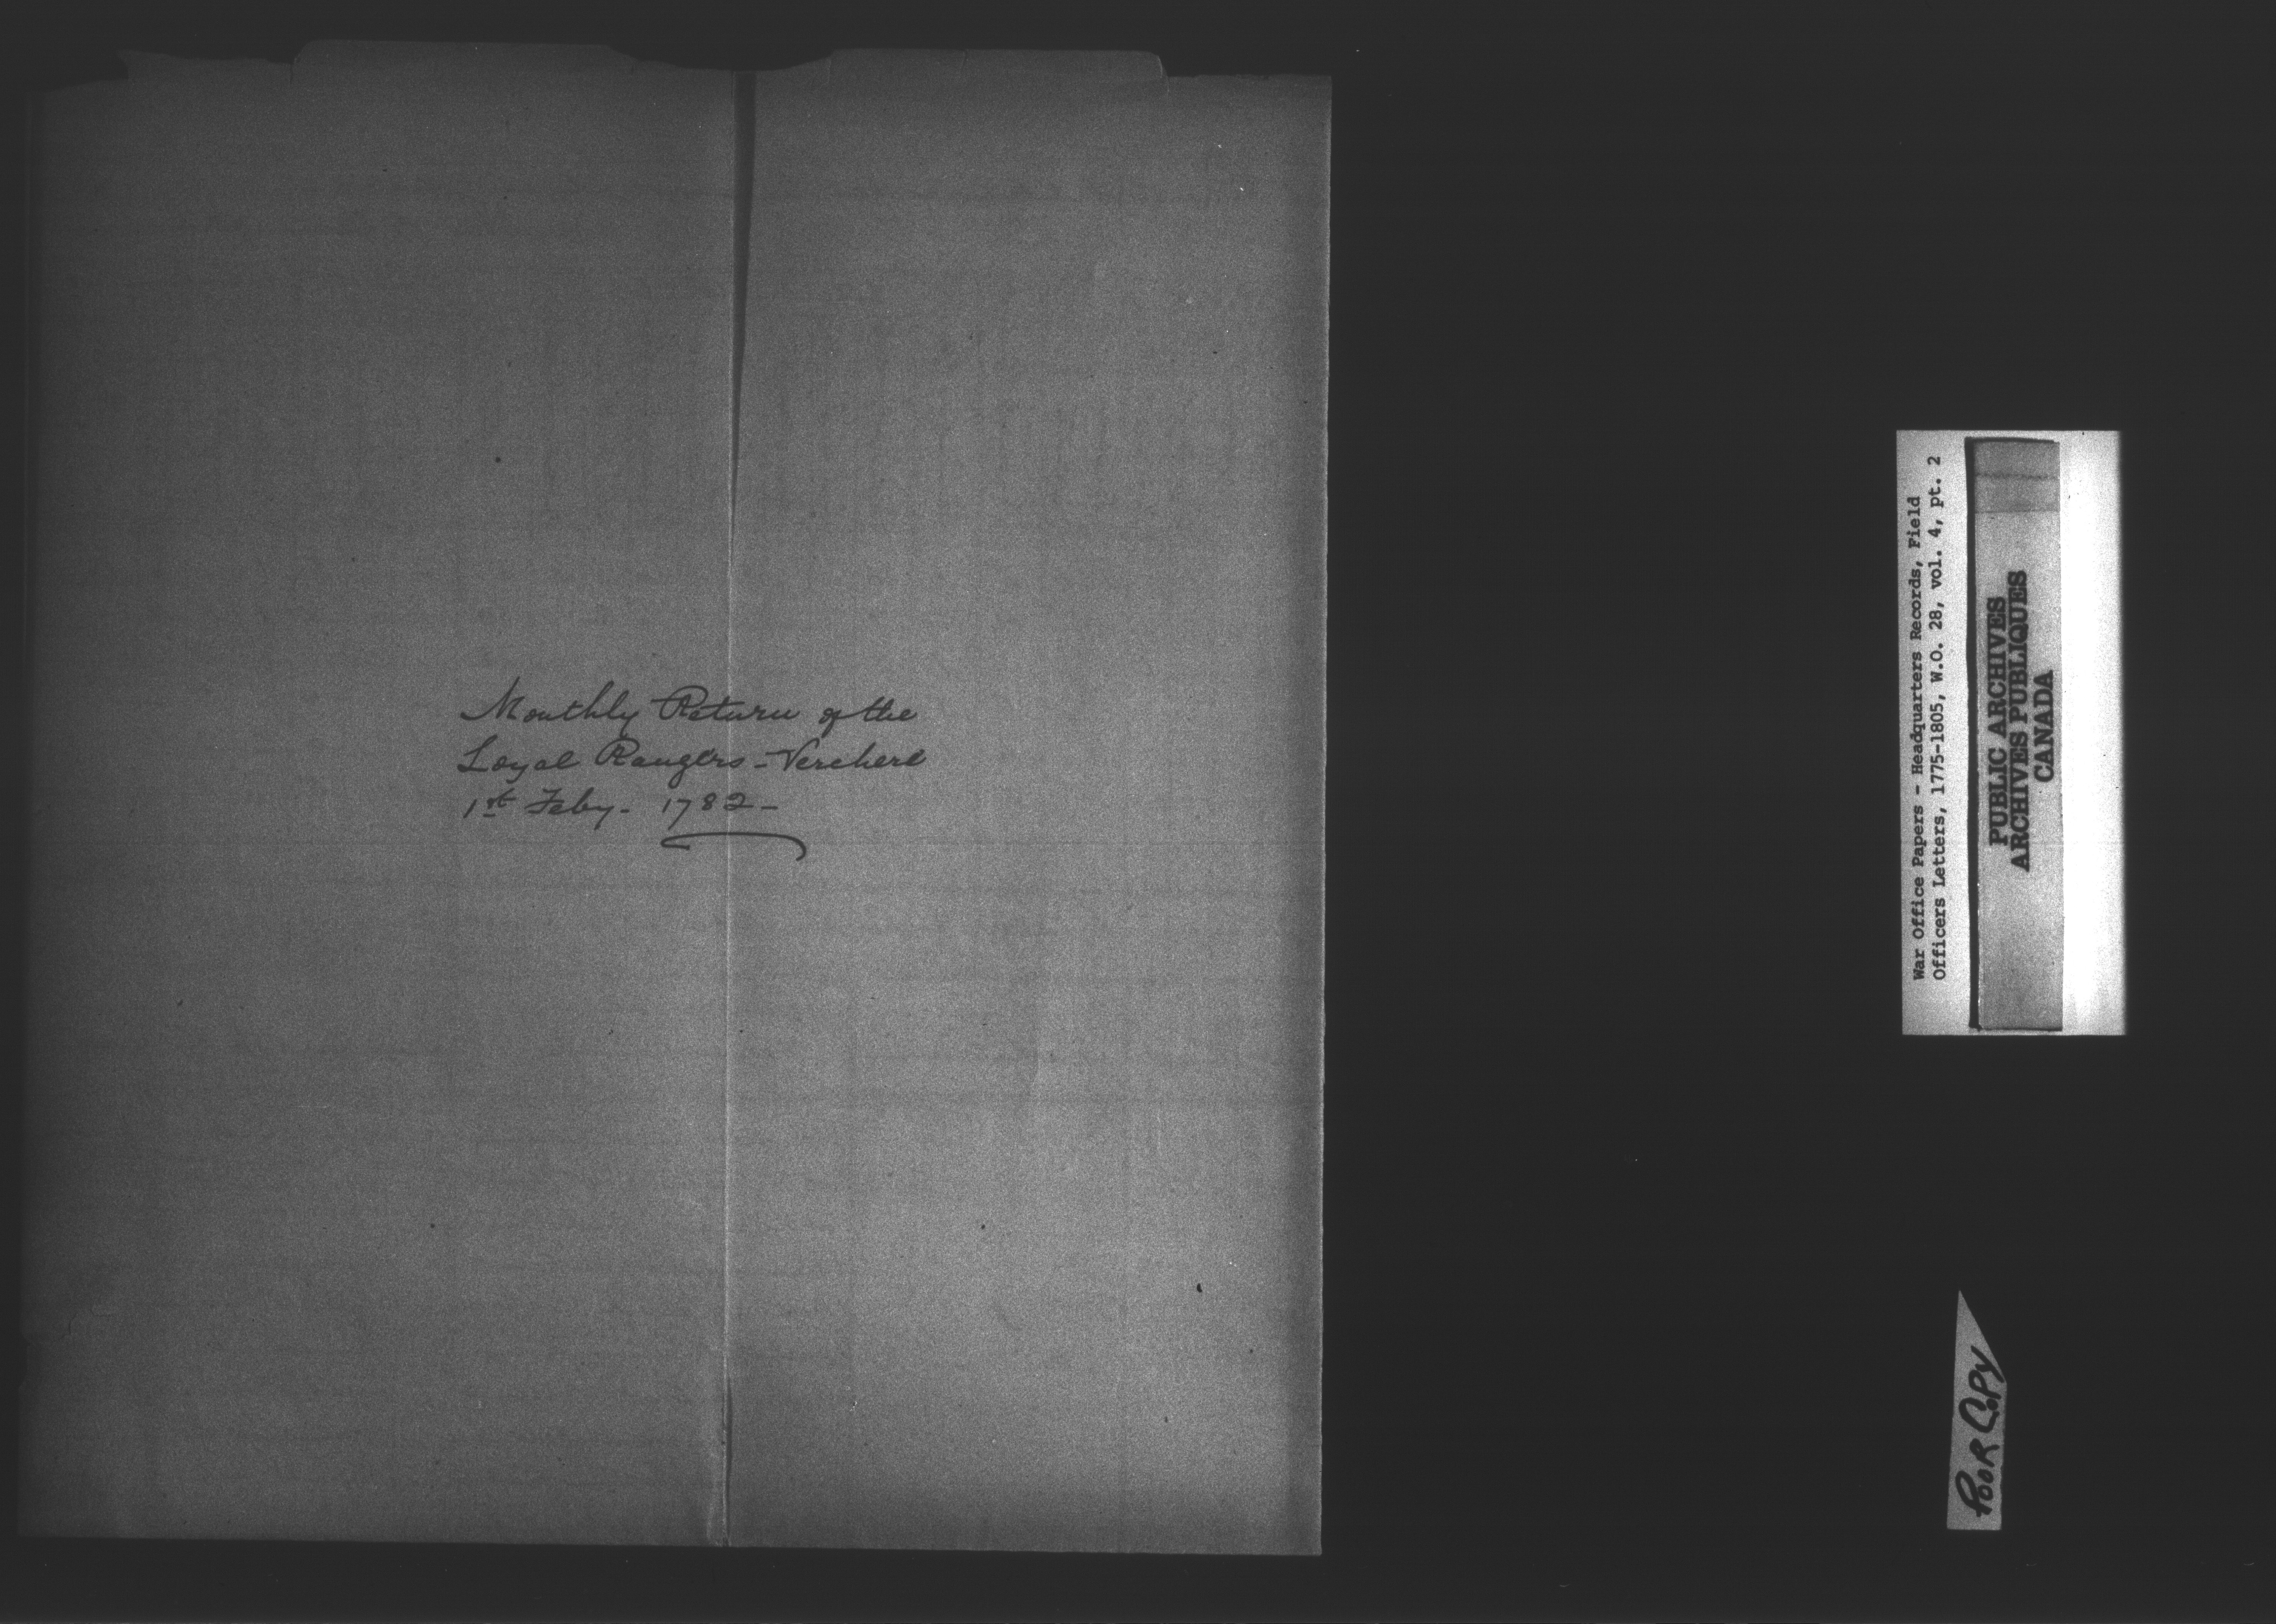 Monthly Return of the
Loyal Rangers - Verchere
1st Feby. 1782 -
War Office Papers - Headquarters Records, Field
Officers Letters, 1775-1805, W.O. 28, vol. 4, pt. 2
PUBLIC ARCHIVES
ARCHIVES PUBLIQUES
CANADA
POOR COPY